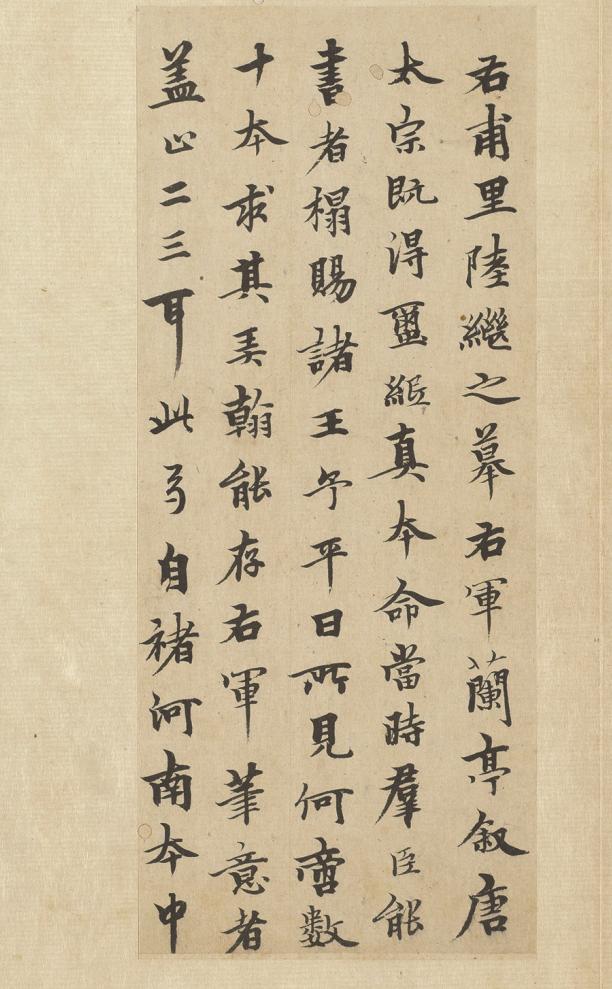 右甫里陸繼之摹右軍蘭亭叙唐
太宗既得璽緱真本命當時羣臣能
書者榻賜諸王予平日所見何啻數
十本求其美翰能存右軍筆意者
盖止二三耳此等自褚河南本中